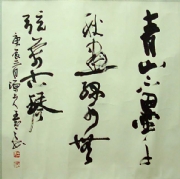 青山不墨千
秋畫綠水無
弦萬古琴
庚辰